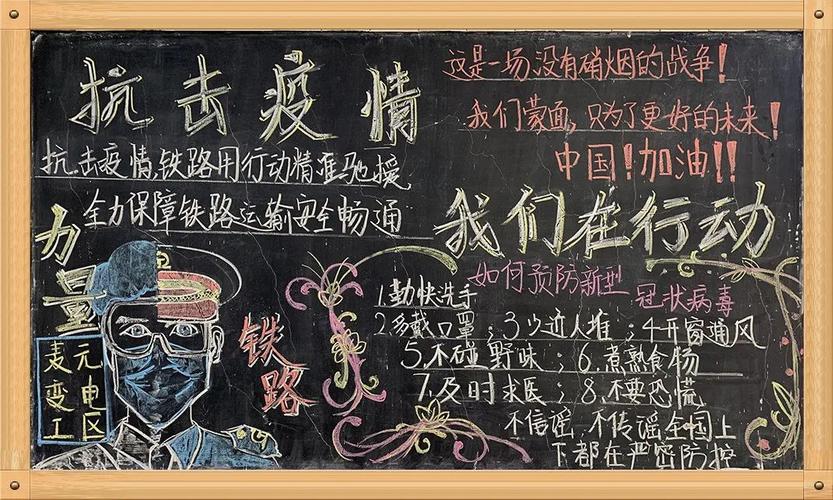 抗击疫情
抗击疫情,铁路用行动精准驰援
全力保障铁路运输安全畅通
力量
铁路
麦元
变电
工区
这是一场没有硝烟的战争!
我们蒙面,只为了更好的未来!
中国!加油!!
我们在行动
如何预防新型冠状病毒
1.勤快洗手
2.多戴口罩;3少进人堆;4开窗通风
5.不碰野味;6.煮熟食物
7.及时求医;8.不要恐慌
不信谣 不传谣全国上
下都在严密防控